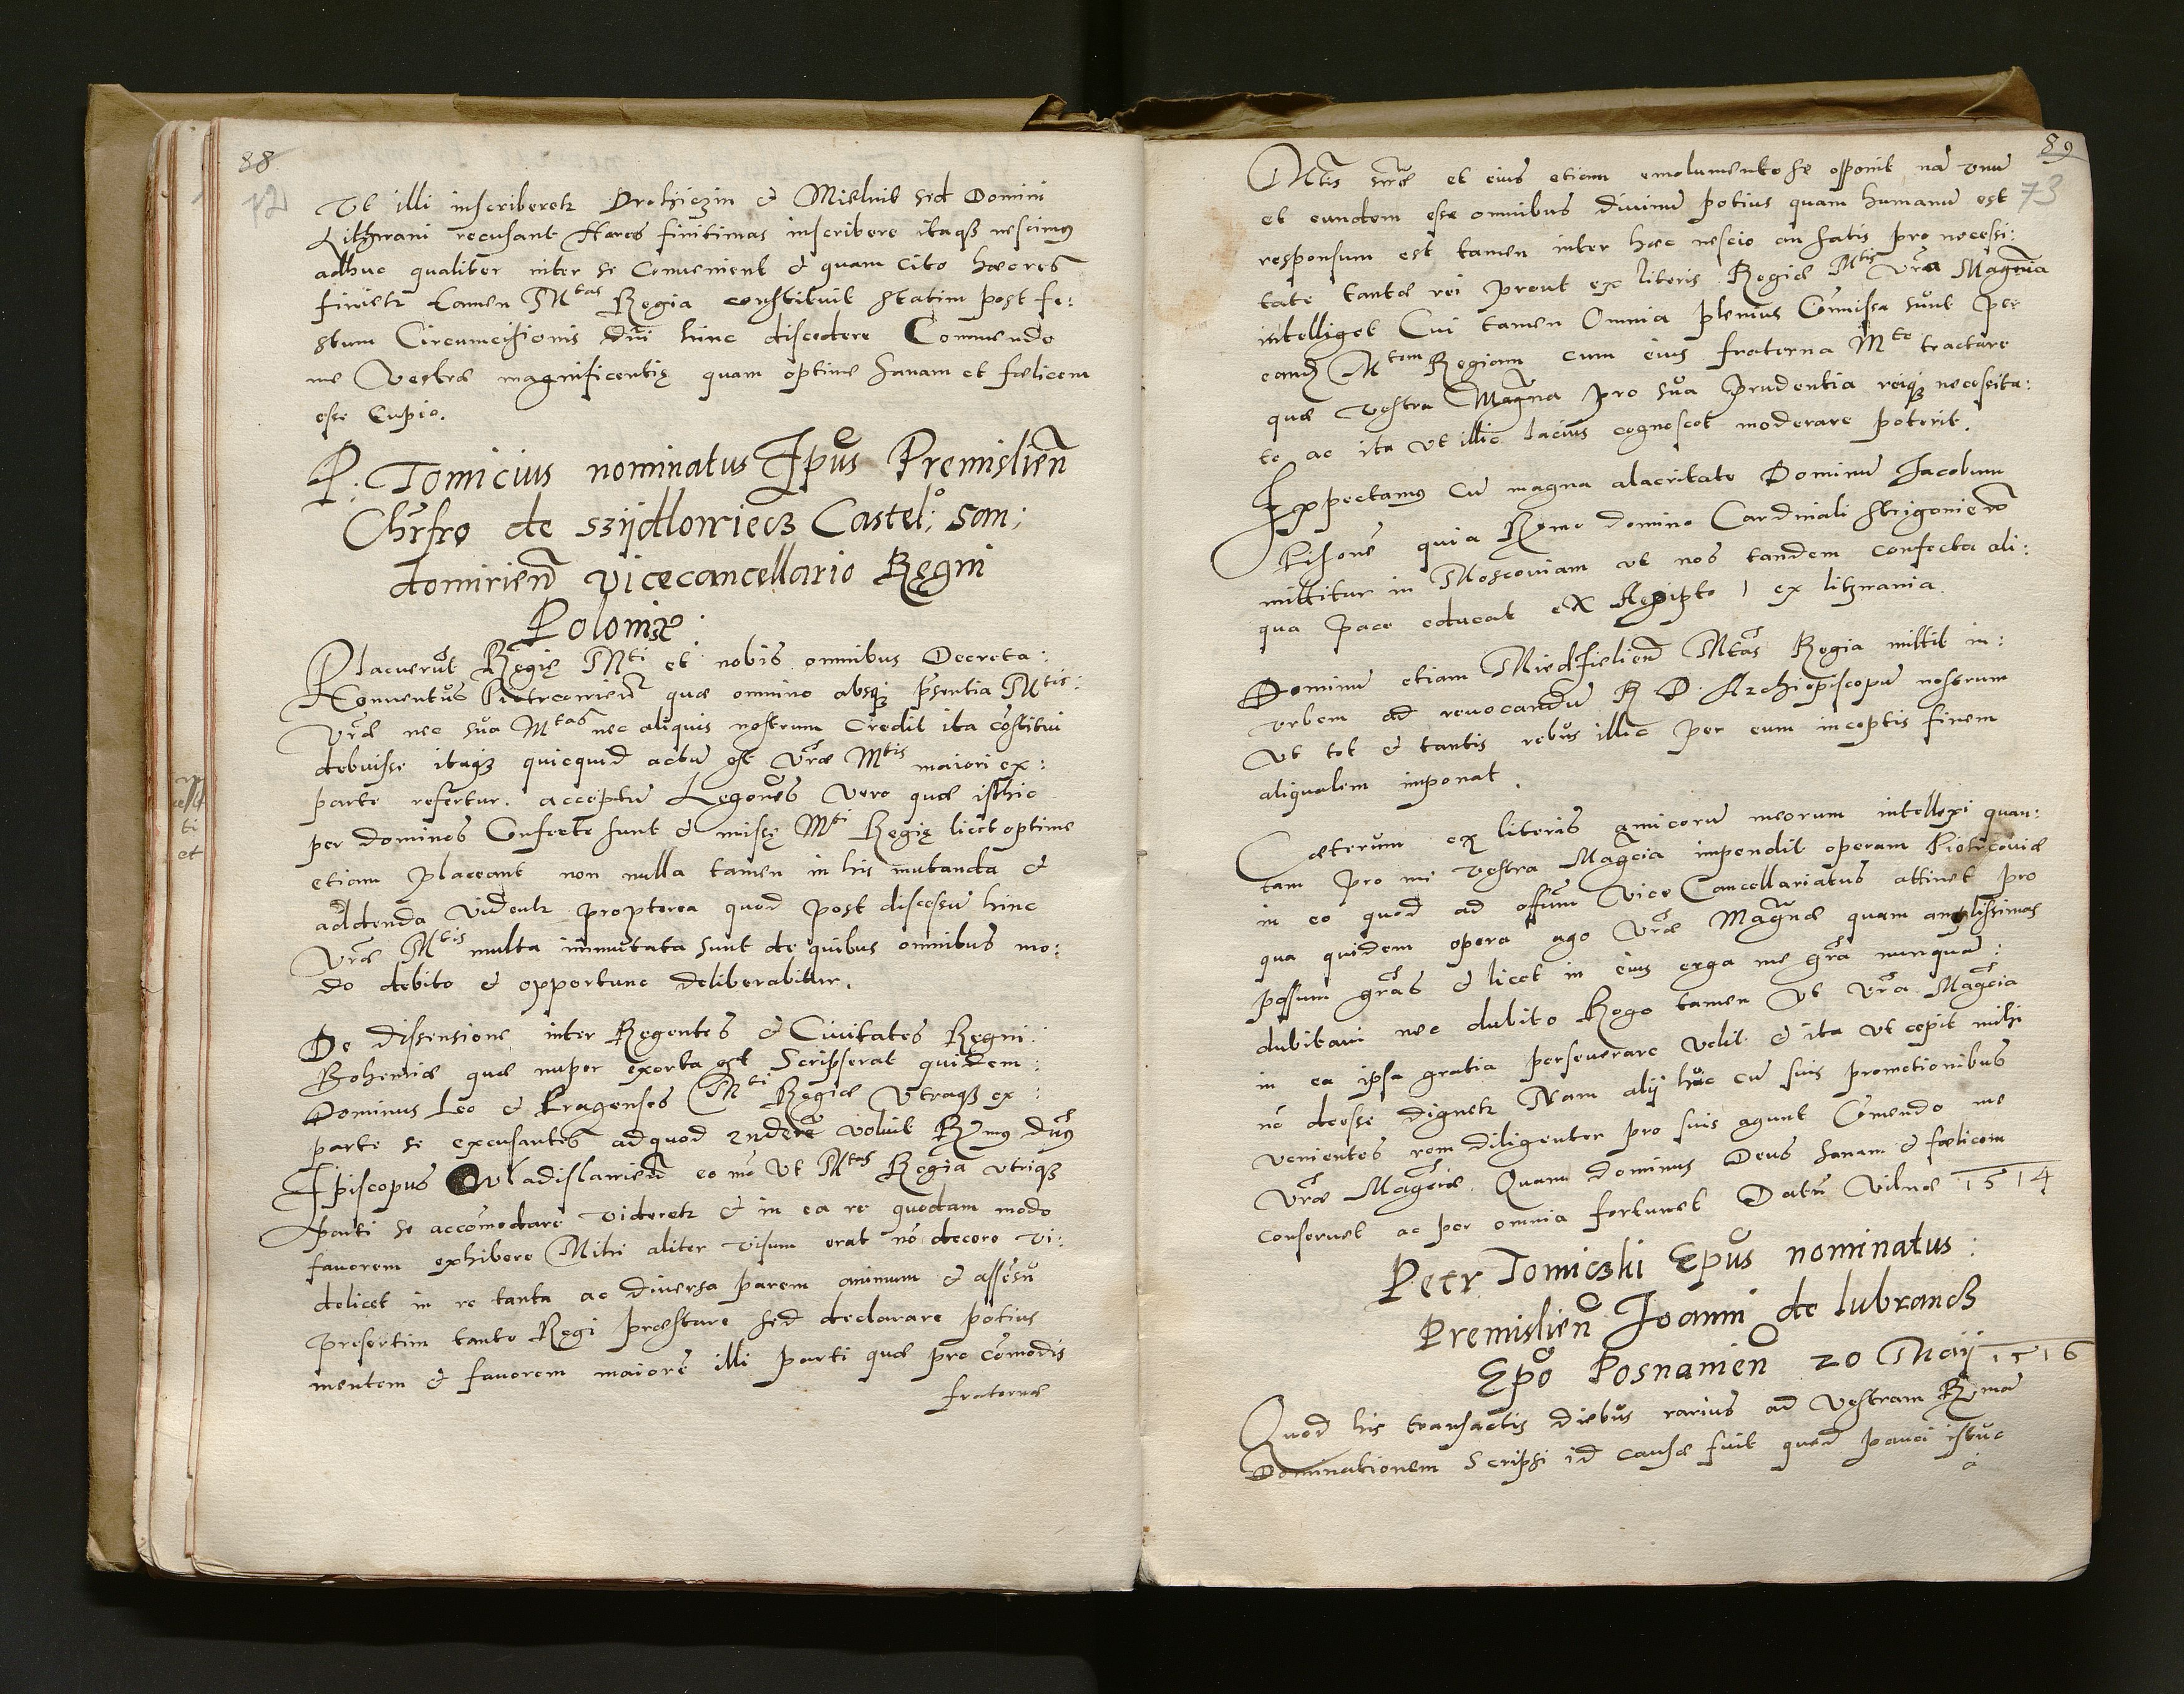 88
72
Ut illi inscriberetr Drohiczin & Mielnik sed Domini
Lithwani recusant Arces finitimas inscribere itaqз nescimus
adhuc qualiter inter se Convenient & quam cito hæc res
finietr tamen Mtas Regia constituit statim post fe:
stum Circumcisionis dni hinc discedere Commendo
me Vestræ magnificentię quam optime sanam et fœlicem
esse cupio.
P. Tomicius nominatus Epus Premislien
Chrfro de szijdlowiecz Castel: San:
domirien vicecancellario Regni
Poloniæ:
Placuerut Regię Mti et nobis omnibus Decreta:
Conventus Piotrcovien quæ omnino absqз psentia Mtis:
Vræ nec sua Mtas nec aliquis nostrum credit ita costitui
debuisse itaqз quicquid actu est Vræ Mtis maiori ex:
parte refertur. acceptu Legones vero quæ isthic
per dominos Confecte sunt & missę Mti Regię licet optime
etiam placeant non nulla tamen in his mutanda &
addenda videntr propterea quod post discessu hinc
Vræ Mtis multa immutata sunt de quibus omnibus mo:
do debito & opportune deliberabitur.
De dissensione inter Regentes & Civitates Regni:
Bohemiæ quæ nuper exorta est Scripserat quidem:
Dominus Leo & Pragenses Mti Regiæ Utraqз ex:
parte se excusantes ad quod rndere voluit Rmus dnus
Episcopus Wladislavien eo mo Ut Mtas Regia utriqз
parti se accomodare videretr & in ea re quodam modo
favorem exhibere Mihi aliter visum erat no decere vi:
delicet in re tanta ac diversa parem animum & assesu
presertim tanto Regi præstare sed declarare potius
mentem & favorem maiore illi parti quæ pro comodis
fraternæ
89
73
Mtis suæ et eius etiam emolumento se opponit, na unu
et eundem esse omnibus divinu potius quam humanu est
responsum est tamen inter hæc nescio an satis pro necessi:
tate tantæ rei prout ex literis Regiæ Mtis Vra Magcia
intelliget Cui tamen Omnia plenius Comissa sunt per
eand Mtem Regiam cum eius fraterna Mte tractare
quæ Vestra Magna pro sua prudentia reiqз necessita:
te ac ita ut illic lacius cognoscet moderare poterit.
Expectamus Cu magna alacritate Dominu Jacobum
Pisone qui a Rmo domino Cardinali Strigonien
mittitur in Moscoviam ut nos tandem confecta ali:
qua pace educat ex Aegipto ex litwania.
Dominu etiam Miedzielien Mtas Regia mittit in:
urbem ad revocandu R D. Archiepiscopu nostrum
Ut tot & tantis rebus illic per eum inceptis finem
aliqualem imponat.
Cæterum ex literis amicoru meorum intellexi quan:
tam pro me vestra Magcia impendit operam Piotrcoviæ
in eo quod ad offum Vice Cancellariatus attinet pro
qua quidem opera ago Vræ Magnæ quam amplissimas
possum gras & licet in eius erga me gra nunqua:
dubitavi nec dubito Rogo tamen Ut Vra Magcia
in ea ipsa gratia perseverare velit & ita ut cepit mihi
no deesse dignetr Nam alij huc cu suis promotionibus
venientes rem diligenter pro suis agunt Comendo me
Vræ Magciæ. Quam dominus Deus sanam & fœlicem
conservet ac per omnia fortunet Datu Vilnæ 1514
Petr. Tomiczki Epus nominatus:
Premislien Joanni de lubrancz
Epo Posnanien 20 Maij 1516
Quod his transactis diebus rarius ad Vestram Rma
Dominationem Scripsi id causæ fuit quod pauci istuc
a